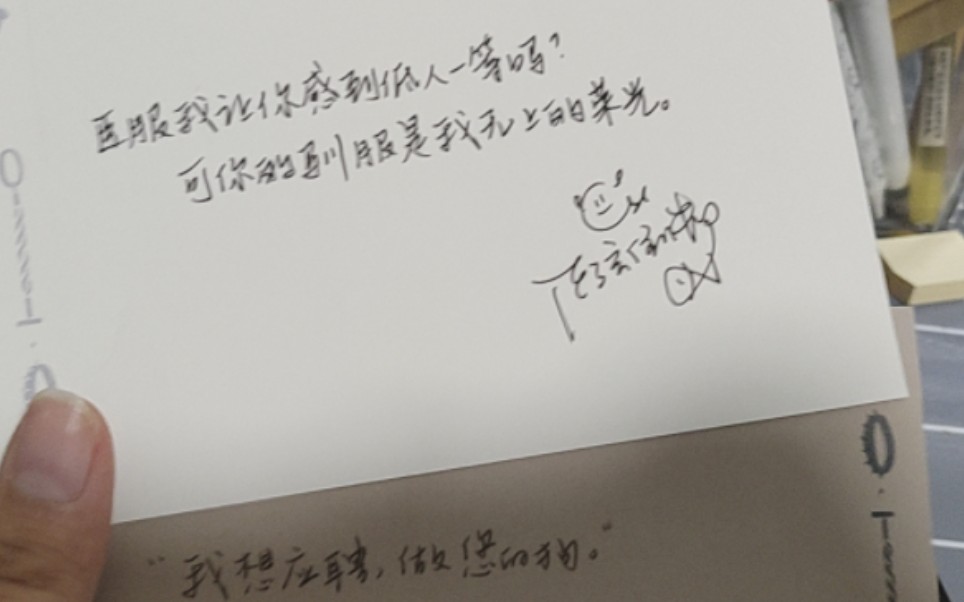 臣服我让你感到低人一等吗?
可你的驯服是我无上的荣光。
“我想应聘,做您的狗。”